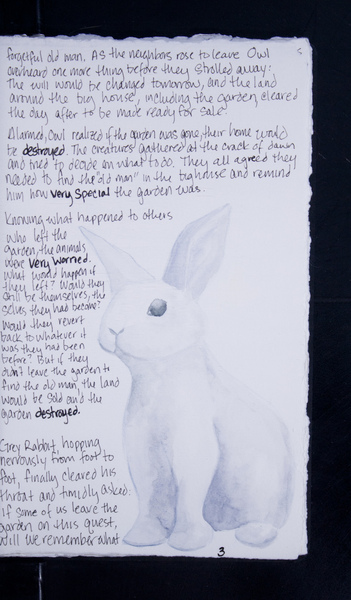 forgetful old man. As the neighbors rose to leave Owl
overheard one more thing before they strolled away:
The will would be changed tomorrow, and the land
around the big house, including the garden cleared
the day after to be made ready for sale!
Alarmed, Owl realized if the garden was gone, their home would
be destroyed. The creatures gathered at the crack of dawn
and tried to decide on what to do. They all agreed they
needed to find the "old man" in the big house and remind
him how very special the garden was.
Knowing what happened to others
who left the
garden, the animals
were very worried.
What would happen if
they left? Would they
still be themselves, the
selves they had become?
Would they revert
back to whatever it
was they had been
before? But if they
didn't leave the garden to
find the old man, the land
would be sold and the
garden destroyed.
Grey Rabbit, hopping
nervously from foot to
foot, finally cleared his
throat and timidly asked:
if some of us leave the
garden on this quest,
will we remember what
3